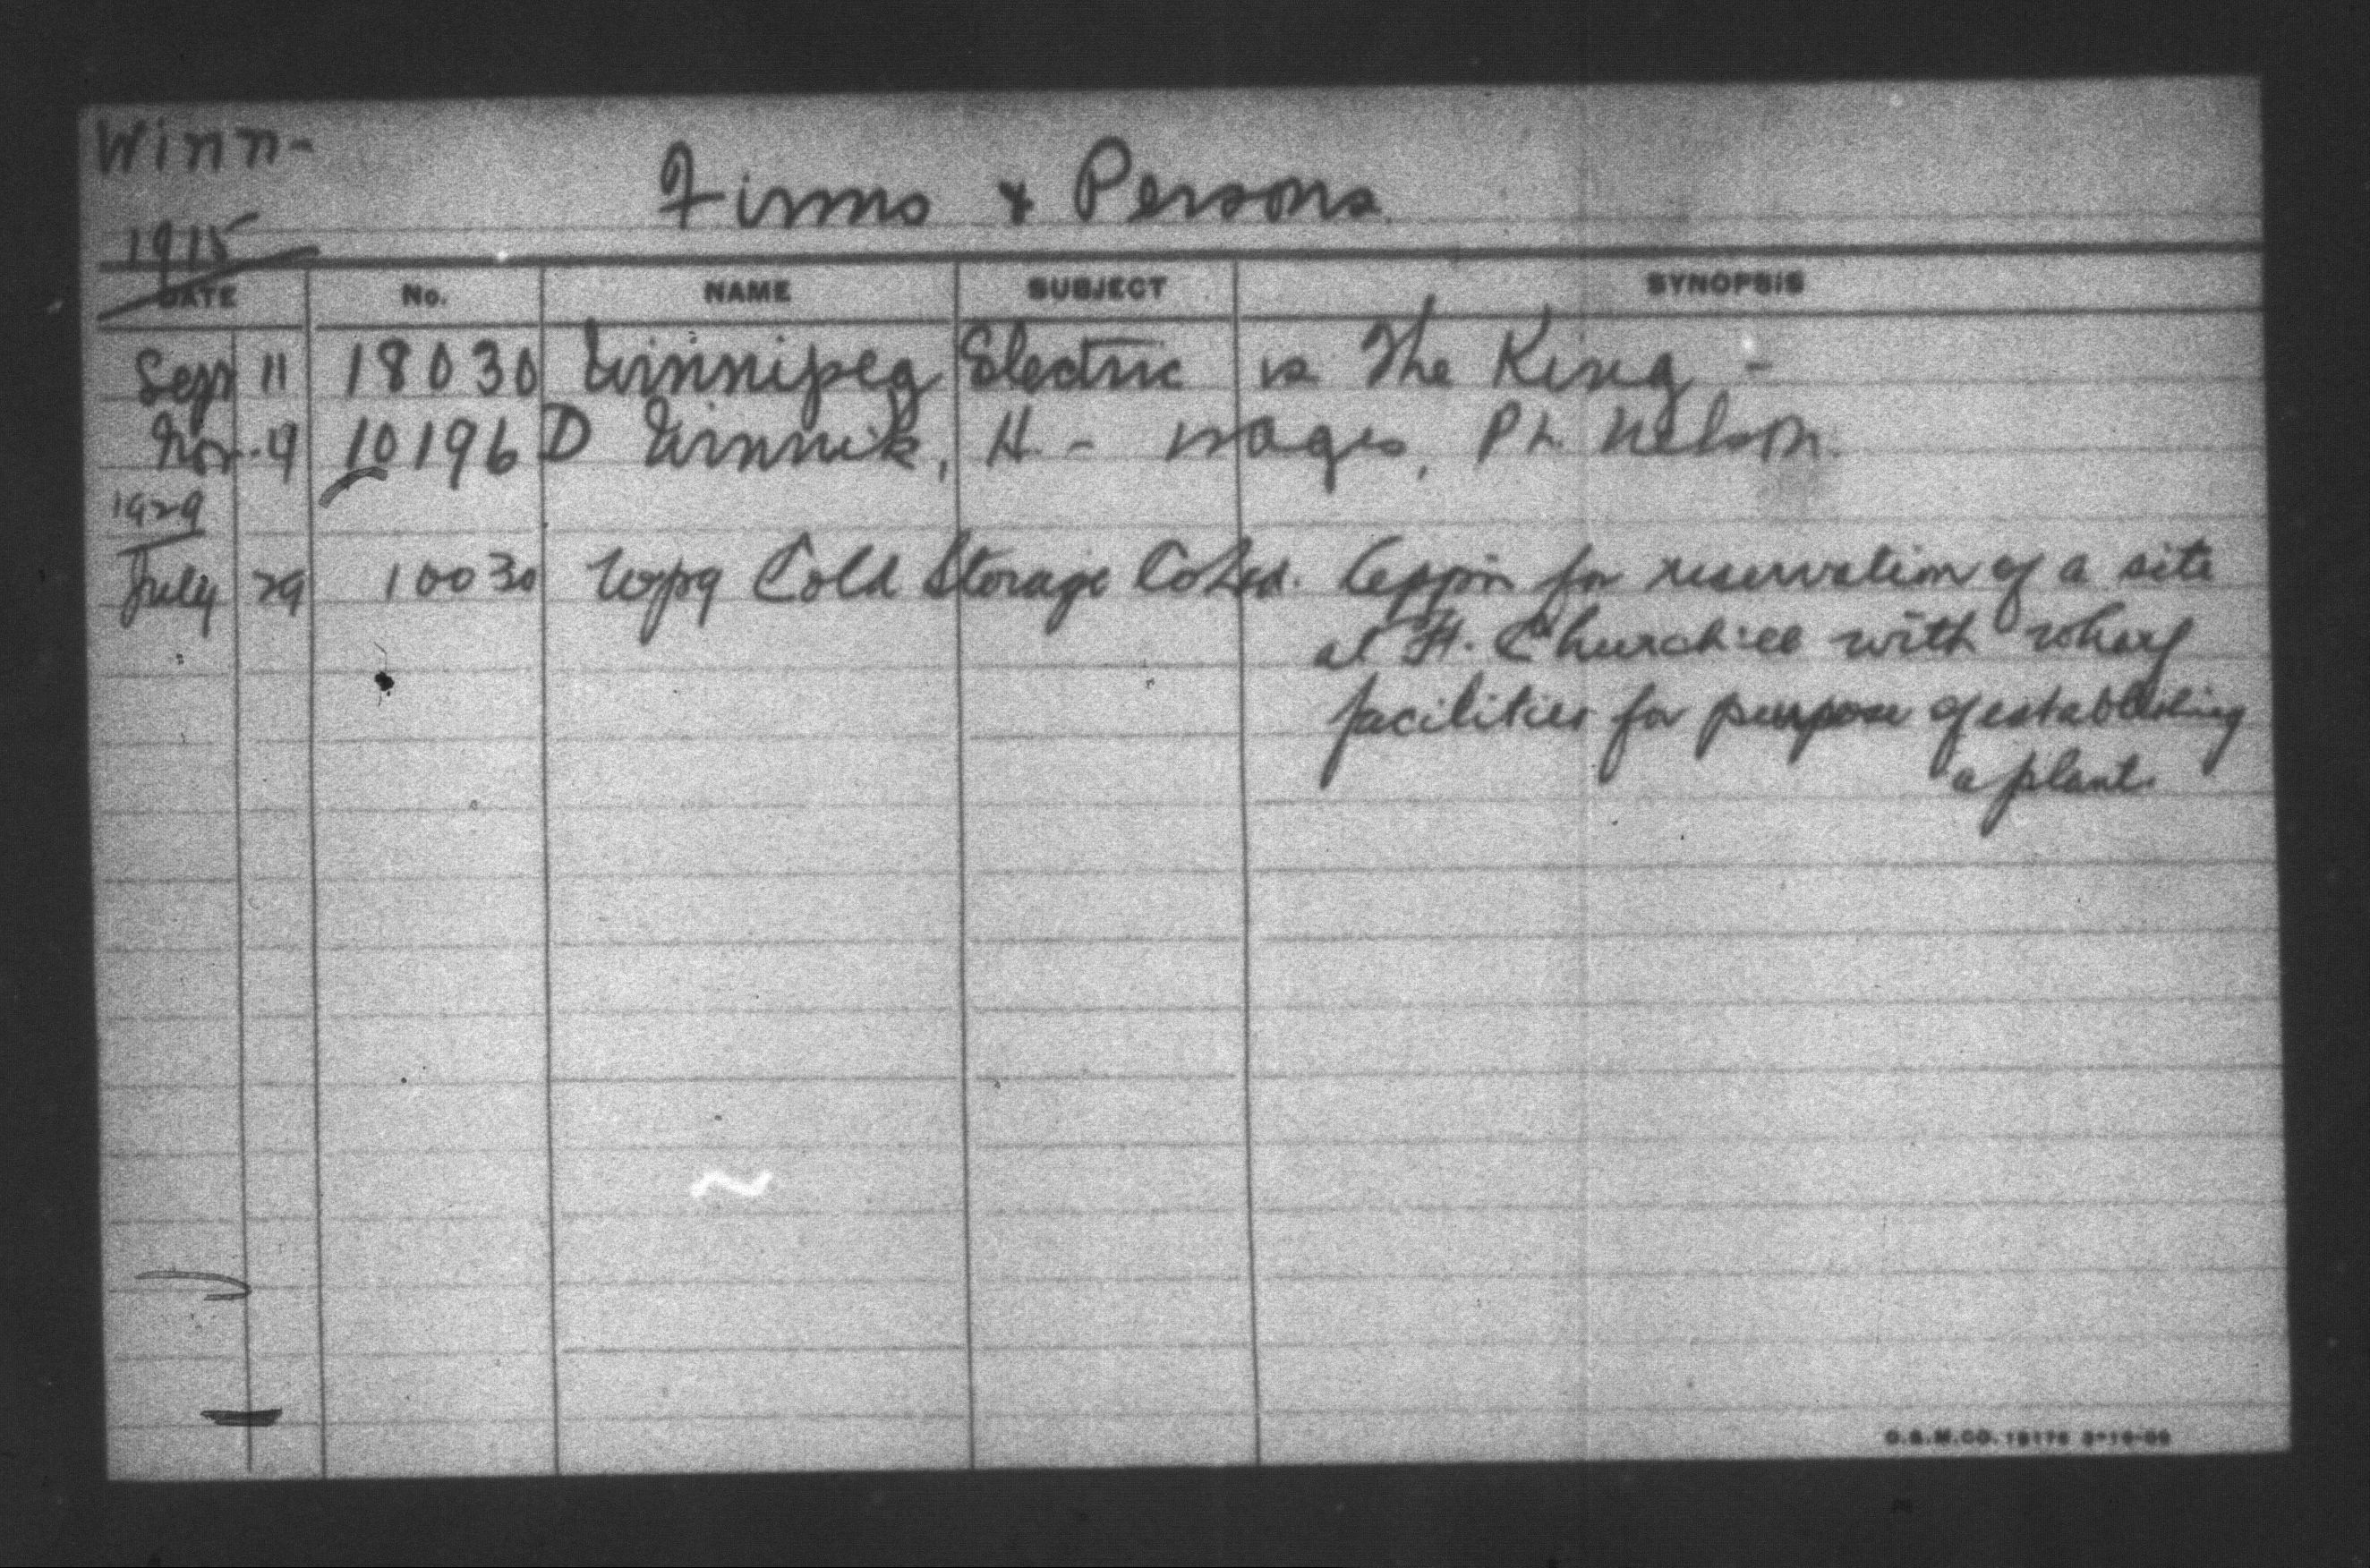 Winn-
Firms & Persons
1915
DATE No. NAME SUBJECT SYNOPSIS
Sept 11 18030 Winnipeg Electric vs The King -
Nov. 19 10196 D Winnik, H - wages, Pt. Nelson.
1929
July 29 10030 Wpg Cold Storage Co Ltd. Appn for reservation of a site
at Ft. Churchill with wharf
facilities for purpose of establishing
a plant.
O.S.M.CO.